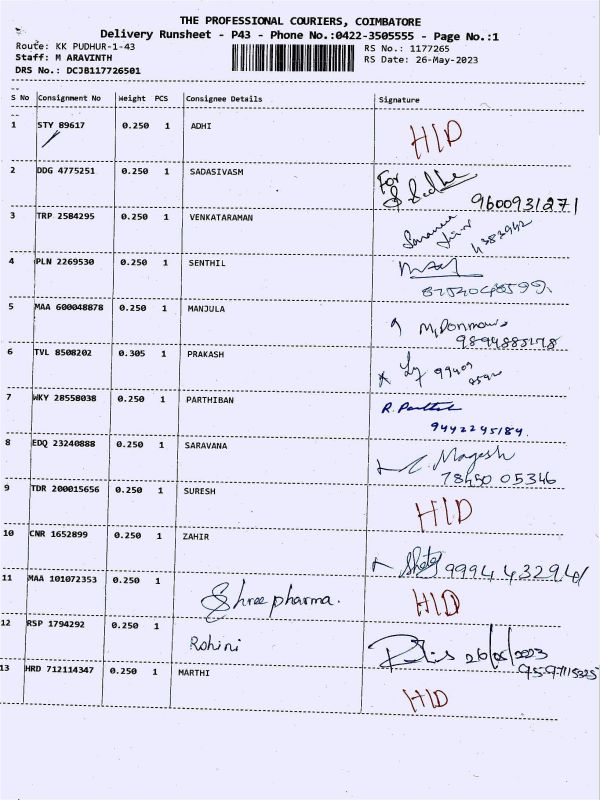 THE PROFESSIONAL COURIERS, COIMBATORE
Delivery Runsheet - P43 - Phone No.:0422-3505555 - Page No.:1
Route: KK PUDHUR-1-43 RS No.: 1177265
Staff: M ARAVINTH RS Date: 26-May-2023
DRS No.: DCJB117726501
S No Consignment No Weight PCS Consignee Details Signature
1 STY 89617 0.250 1 ADHI HID
2 DDG 4775251 0.250 1 SADASIVASM For
9600931271
3 TRP 2584295 0.250 1 VENKATARAMAN
4 PLN 2269530 0.250 1 SENTHIL
5 MAA 600048878 0.250 1 MANJULA
6 TVL 8508202 0.305 1 PRAKASH
7 WKY 28558038 0.250 1 PARTHIBAN
9442245184
8 EDQ 23240888 0.250 1 SARAVANA Magesh
78450 05346
9 TDR 200015656 0.250 1 SURESH HID
10 CNR 1652899 0.250 1 ZAHIR
11 MAA 101072353 0.250 1 Shree pharma. HID
12 RSP 1794292 0.250 1 Rohini 26/05/2023
13 HRD 712114347 0.250 1 MARTHI HID